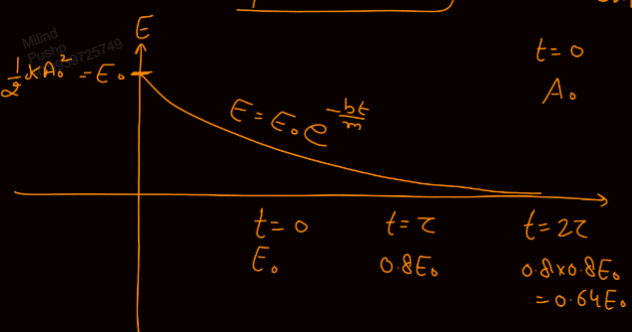 E
Milind
Pushp
9399725749
½kA₀² = E₀
E = E₀e^(-bt/m)
t = 0
A₀
t = 0
t = τ
t = 2τ
E₀
0.8E₀
0.8x0.8E₀
= 0.64E₀